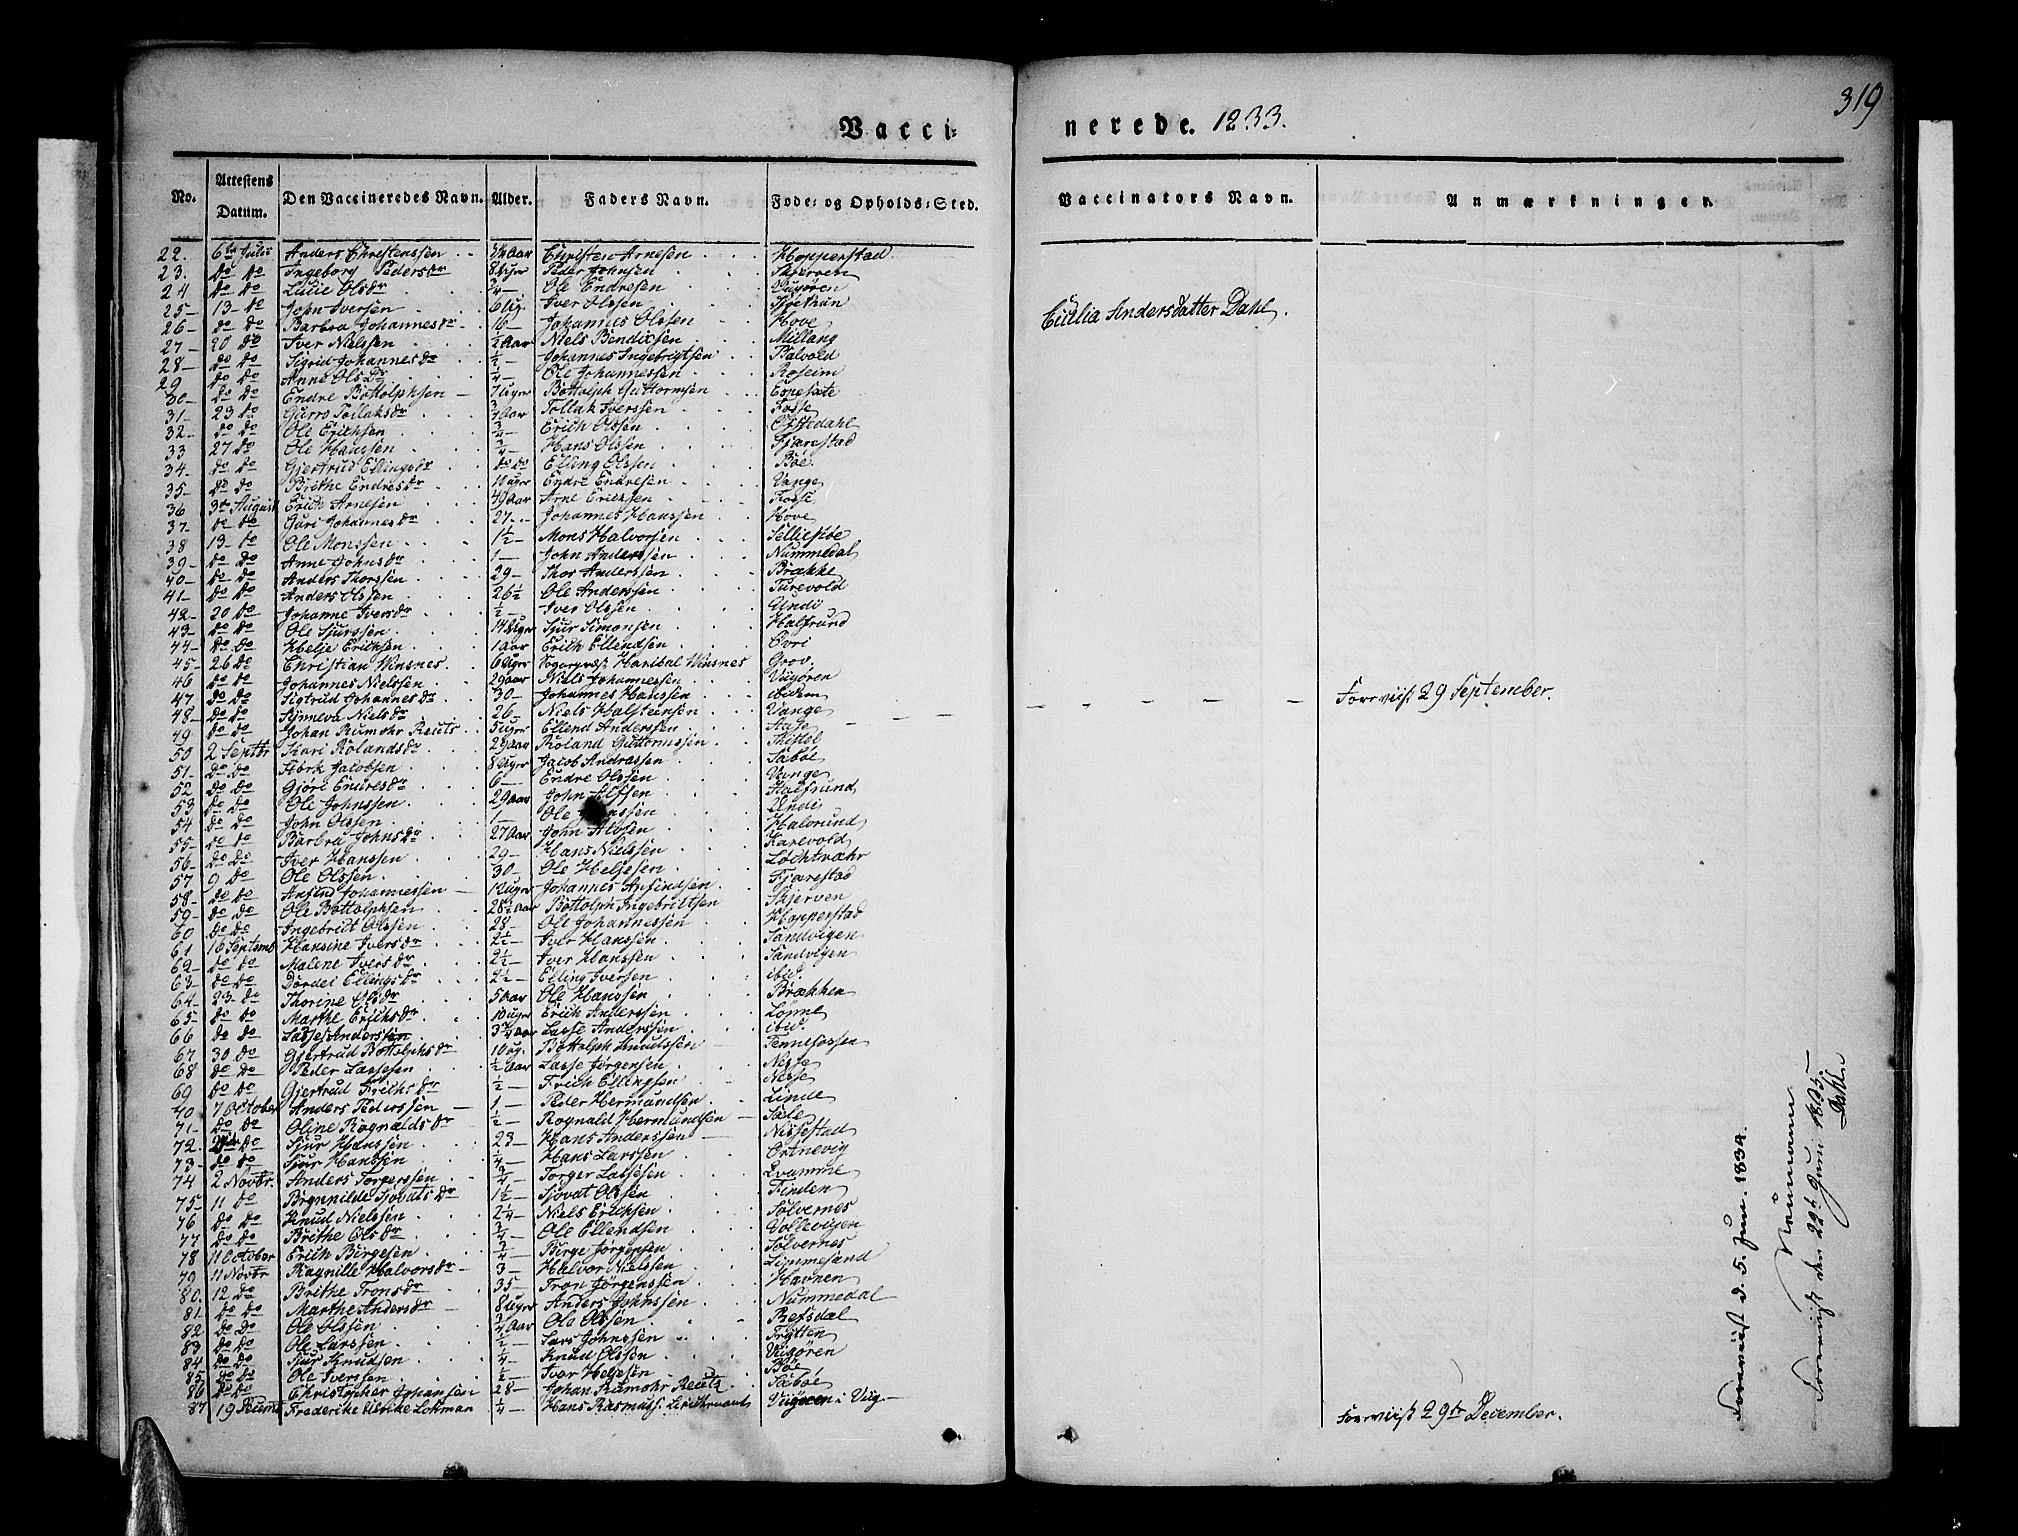 319
Vacci=
nerede. 1833.
No.
Attestens Datum.
Den Vaccineredes Navn.
Alder.
Faders Navn.
Føde= og Opholds=Sted.
Vaccinators Navn.
Anmærkninger.
22. 6te Julii Anders Christenssen Aar Christen Arnesen Hopperstad
23. do do Ingeborg Pedersdr 8 Uger Peder Johnsen Skjerven
24 do do Lucie Olsdr Ole Endresen Viigøren
25- 13- do John Iversen 6 Ug. Iver Olssen
26- do do Barbra Johannesdr 16- Johannes Olssen Hove
27- 20 do Iver Nielssen ½ Aar Niels Bendixsen Millang
28- do do Sigrid Johannesdr ½- Johannes Ingebrigtsen Balvold
29 do do Anne Olsdr ¼- Ole Johannessen Roseim
30- do do Endre Bottolphsen 7 Uger Bottolph Guttormsen Espesæte
31- 23 do Gurro Tollaksdr ¾ Aar Tollak Iverssen Fosse
32- do do Ole Erichsen ¾- Erich Olssen Offstedahl
33 27 do Ole Hanssen ¾- Hans Olssen Fjærestad
34- do do Gjertrud Ellingsdr do do Elling Olssen Bøe
35- do do Brithe Endresdr 10 Uger Endre Endresen Vange
36 3die August Erich Arnesen 49 Aar Arne Erichsen Fosse
37- do do Guri Johannesdr 27- Johannes Hanssen Hove
38 13- do Ole Monssen 1½- Mons Halvorsen
39- do do Anne Johnsdr 1- John Anderssen Nummedal
40- do do Anders Thorssen 29- Thor Anderssen Brække
41- do do Anders Olssen 26½ Ole Anderssen Turevold
42- 20 do Johanne Iversdr ½- Iver Olssen Undi
43- do do Ole Sjurssen 14 Uger Sjur Simonsen Halfrund
44- do do Helje Erichsen 1 Aar Erich Ellendsen Øvri
45- 26 do Christian Winsnes 6 Uger Sogneprest Hanibal Winsnes Grov
46 do do Johannes Nielssen 29 Aar Niels Johannessen Viigøren
47 do do Sigtrud Johannesdr 30- Johannes Hanssen ibidem Foreviist 29 September.
48- do do Synneva Nielsdr 26- Niels Halsteensen Vange
49 do do Johan Rumohr Reutz 5 Uger Ellend Anderssen
50 2 Septbr Kari Rolandsdr 29 Aar Roland Guttormssen
51- do do Størk Jacobsen 8 Uger Jacob Andrassen Sæbøe
52 do do Gjøri Endresdr 6- Endre Olssen Vange
53 do do Ole Johnssen 29 Aar John Halfrund
54 do do John Olssen 1- Ole Undi
55- do do Barbra Johnsdr 27 Aar John Halvrund
56- do do Iver Hanssen 29- Hans Nielssen Karevold
57 9 do Ole Olssen 30- Ole Heljesen
58- do do Anfind Johannessen 12 Uger Johannes Anfindsen Fjærestad
59- do do Ole Bottolphsen 28½ Aar Bottolph Ingebrittsen Skjerven
60 do do Ingebritt Olssen 28- Ole Johannessen Hopperstad
61 16 Septemb Hansine Iversdr 2½- Iver Hanssen Sandvigen
62- do do Malene Iversdr 2½- Iver Hanssen Sandvigen
63- do do Dordei Ellingsdr 2½- Elling Iversen ibid.
64- 23- do Thorine Olsdr 5 Aar Ole Hanssen Brækken
65- do do Marthe Erichsdr 10 Uger Erich Anderssen
66 do do Lasse Anderssen 3¾ Aar Lasse Anderssen ibid.
67- 30 do Gjertrud Bottolphsdr 10 Ug. Bottolph Knudssen Tennefossen
68 do do Peder Lassesen ½ Aar Lasse Jørgensen Nesse
69 do do Gjertrud Erichsdr ½- Erich Ellingssen Nesse
70 7 October Anders Pederssen 1- Peder Hermundsen Linde
71- do do Oline Rognaldsdr ½- Rognald Hermundsen Sæle
72- do Sjur Hanssen 23- Hans Anderssen Nissestad
73- do do Sjur Hanssen ¼- Hans Larssen Ortnevig
74 2 Novbr. Anders Torgerssen ¾- Torger Lassesen Qvamme
75- 11 do Brynnilde Sjovatsdr 1½- Sjovat Olssen Finden
76 do do Knud Nielssen 2¼- Niels Erichsen Sølvernes
77 do do Brithe Olsdr ¾- Ole Ellendsen
78 11 October Erich Birgesen ¾- Birge Jørgensen Sølvernes
79 11 Novbr Ragnille Halvorsdr 3- Halvor Nielssen Limmesand
80. 12 do Brithe Tronsdr 35- Tron Jørgenssen Havnen
81- do do Marthe Andersdr 8 Uger Anders Johnssen Nummedal
82 do do Ole Olssen ¾ Aar Ole Olssen Refsdal
83 do do Ole Larssen ½- Lars Johnssen Frÿtten
84 do do Sjur Knudsen ¼- Knud Olssen Viigøren
85. do do Ole Iverssen ½- Iver Heljesen Bøe
86 do do Christopher Johansen 28- Johan Rumohr Reutz Sæbøe
87 19 Frederike Ulrike Lohman ¼- Hans Rasmuss. Viigøren i Viig
Cicilia Andersdatter Dahl.
Foreviist 29de December.
Foreviist d. 5. Juni. 1834.
Neumann
Foreviist den 22de Juni 1835-
Dahl